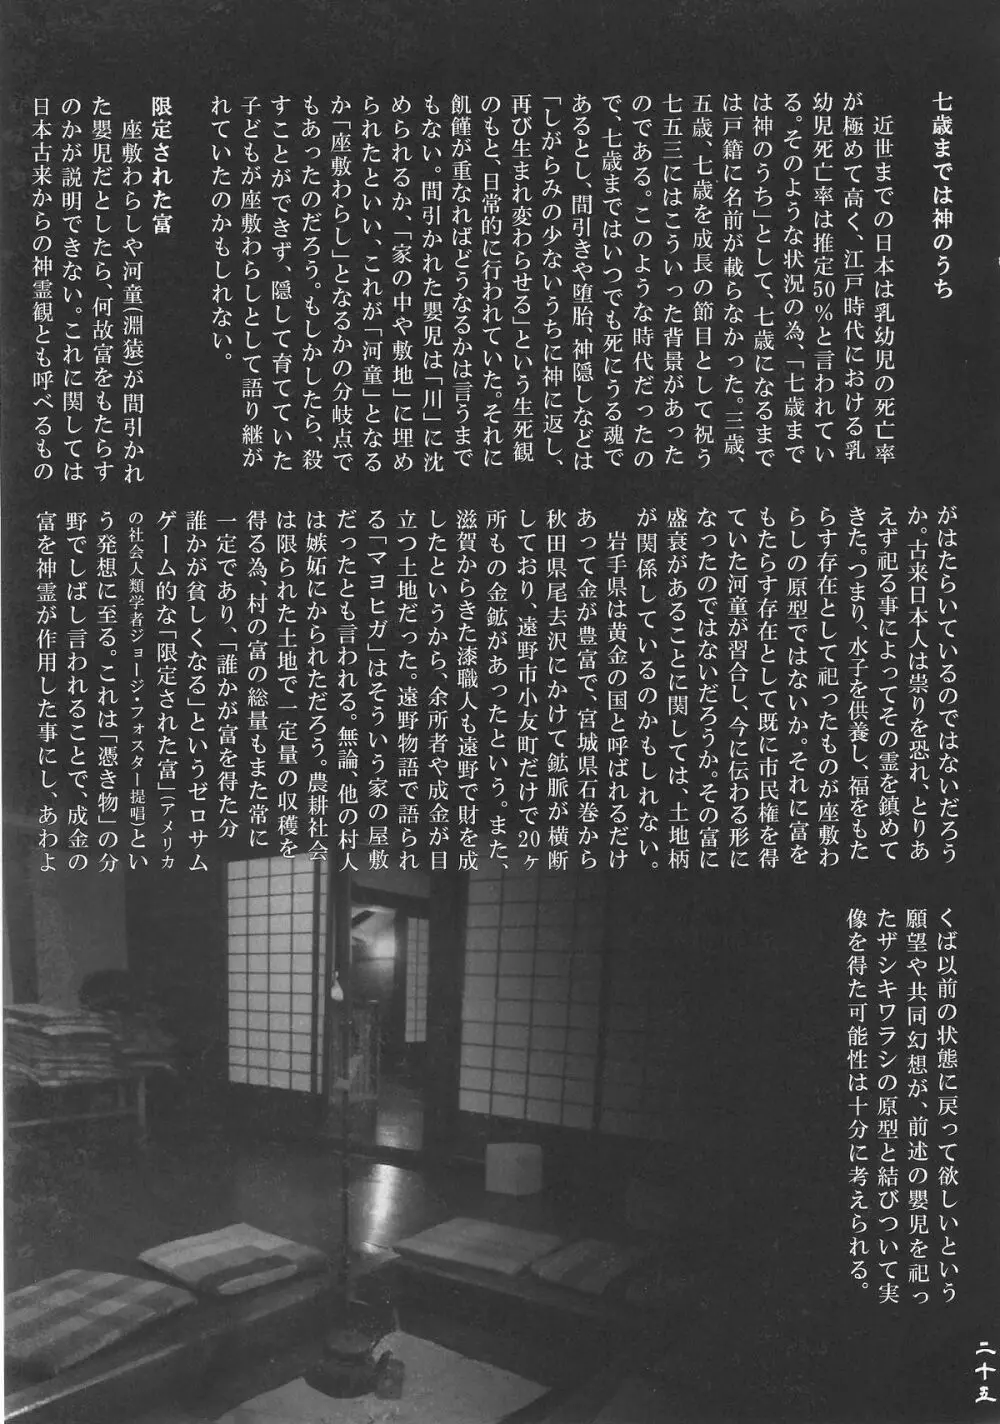 七歳までは神のうち
近世までの日本は乳幼児の死亡率
が極めて高く、江戸時代における乳
幼児死亡率は推定50%と言われてい
る。そのような状況の為、「七歳まで
は神のうち」として、七歳になるまで
は戸籍に名前が載らなかった。三歳、
五歳、七歳を成長の節目として祝う
七五三にはこういった背景があった
のである。このような時代だったの
で、七歳まではいつでも死にうる魂で
あるとし、間引きや堕胎、神隠しなどは
「しがらみの少ないうちに神に返し、
再び生まれ変わらせる」という生死観
のもと、日常的に行われていた。それに
飢饉が重なればどうなるかは言うまで
もない。間引かれた嬰児は「川」に沈
められるか、「家の中や敷地」に埋め
られたといい、これが「河童」となる
か「座敷わらし」となるかの分岐点で
もあったのだろう。もしかしたら、殺
すことができず、隠して育てていた
子どもが座敷わらしとして語り継が
れていたのかもしれない。
限定された富
座敷わらしや河童(淵猿)が間引かれ
た嬰児だとしたら、何故富をもたらす
のかが説明できない。これに関しては
日本古来からの神霊観とも呼べるもの
がはたらいているのではないだろう
か。古来日本人は祟りを恐れ、とりあ
えず祀る事によってその霊を鎮めて
きた。つまり、水子を供養し、福をもた
らす存在として祀ったものが座敷わ
らしの原型ではないか。それに富を
もたらす存在として既に市民権を得
ていた河童が習合し、今に伝わる形に
なったのではないだろうか。その富に
盛衰があることに関しては、土地柄
が関係しているのかもしれない。
岩手県は黄金の国と呼ばれるだけ
あって金が豊富で、宮城県石巻から
秋田県尾去沢にかけて鉱脈が横断
しており、遠野市小友町だけで20ヶ
所もの金鉱があったという。また、
滋賀からきた漆職人も遠野で財を成
したというから、余所者や成金が目
立つ土地だった。遠野物語で語られ
る「マヨヒガ」はそういう家の屋敷
だったとも言われる。無論、他の村人
は嫉妬にかられただろう。農耕社会
は限られた土地で一定量の収穫を
得る為、村の富の総量もまた常に
一定であり、「誰かが富を得た分
誰かが貧しくなる」というゼロサム
ゲーム的な「限定された富」(アメリカ
の社会人類学者ジョージ・フォスター提唱)とい
う発想に至る。これは「憑き物」の分
野でしばしば言われることで、成金の
富を神霊が作用した事にし、あわよ
くば以前の状態に戻って欲しいという
願望や共同幻想が、前述の嬰児を祀っ
たザシキワラシの原型と結びついて実
像を得た可能性は十分に考えられる。
二十五